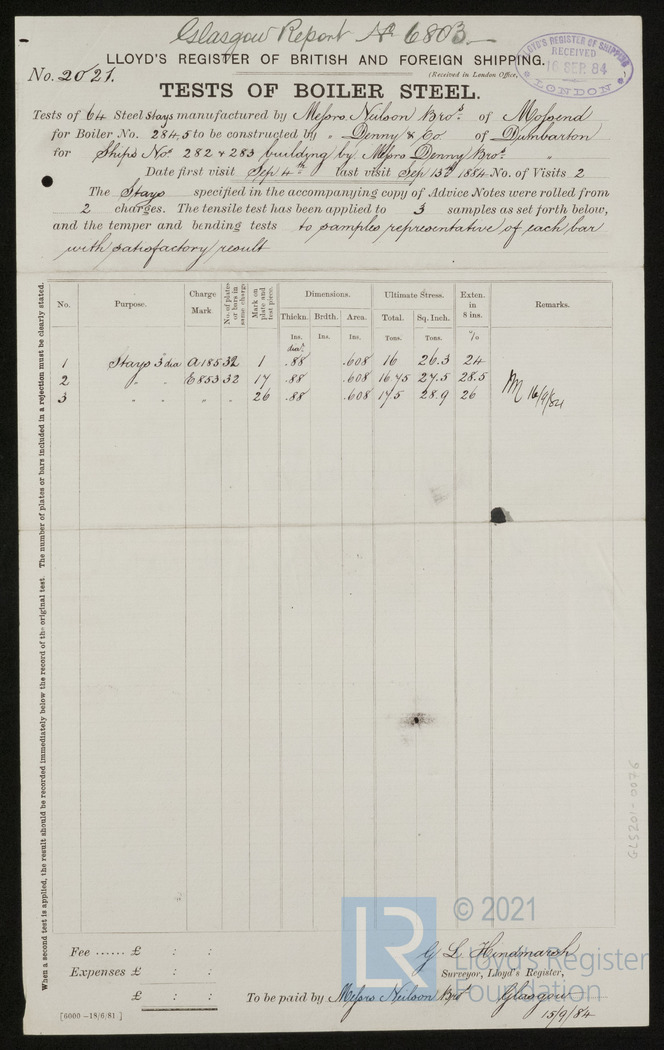 Glasgow Report No 6803
LLOYD'S REGISTER OF BRITISH AND FOREIGN SHIPPING.
No. 2021.
(Received in London Office,
LLOYD'S REGISTER OF SHIPPING
RECEIVED
16 SEP. 84
LONDON
TESTS OF BOILER STEEL.
Tests of 64 Steel Stays manufactured by Messrs Neilson Bros. of Mossend
for Boiler No. 284,5 to be constructed by " Denny & Co of Dumbarton
for Ships Nos 282 & 283 building by Messrs Denny Bros. "
Date first visit Sep 4th last visit Sep 15th 1884 No. of Visits 2
The Stays specified in the accompanying copy of Advice Notes were rolled from
2 charges. The tensile test has been applied to 3 samples as set forth below,
and the temper and bending tests to samples representative of each bar
with satisfactory result
When a second test is applied, the result should be recorded immediately below the record of the original test. The number of plates or bars included in a rejection must be clearly stated.
No. Purpose. Charge Mark No. of plates or bars in same charge Mark on plate and test piece. Dimensions. Ultimate Stress. Exten. in 8 ins. Remarks.
Thickn. Brdth. Area. Total. Sq. Inch.
Ins. Ins. Ins. Tons. Tons. %
diar.
1 Stays 3" dia A185 32 1 .88 .608 16 26.3 24
2 " " E853 32 17 .88 .608 16.75 27.5 28.5
3 " " " " 26 .88 .608 17.5 28.9 26
16/9/84
GLS201-0076
Fee ...... £ : :
Expenses £ : :
£ : :
G L Hindmarsh
Surveyor, Lloyd's Register,
To be paid by Messrs Neilson Bros Glasgow
15/9/84
[6000 -18/6/81 ]
LR
© 2021
Lloyd's Register
Foundation